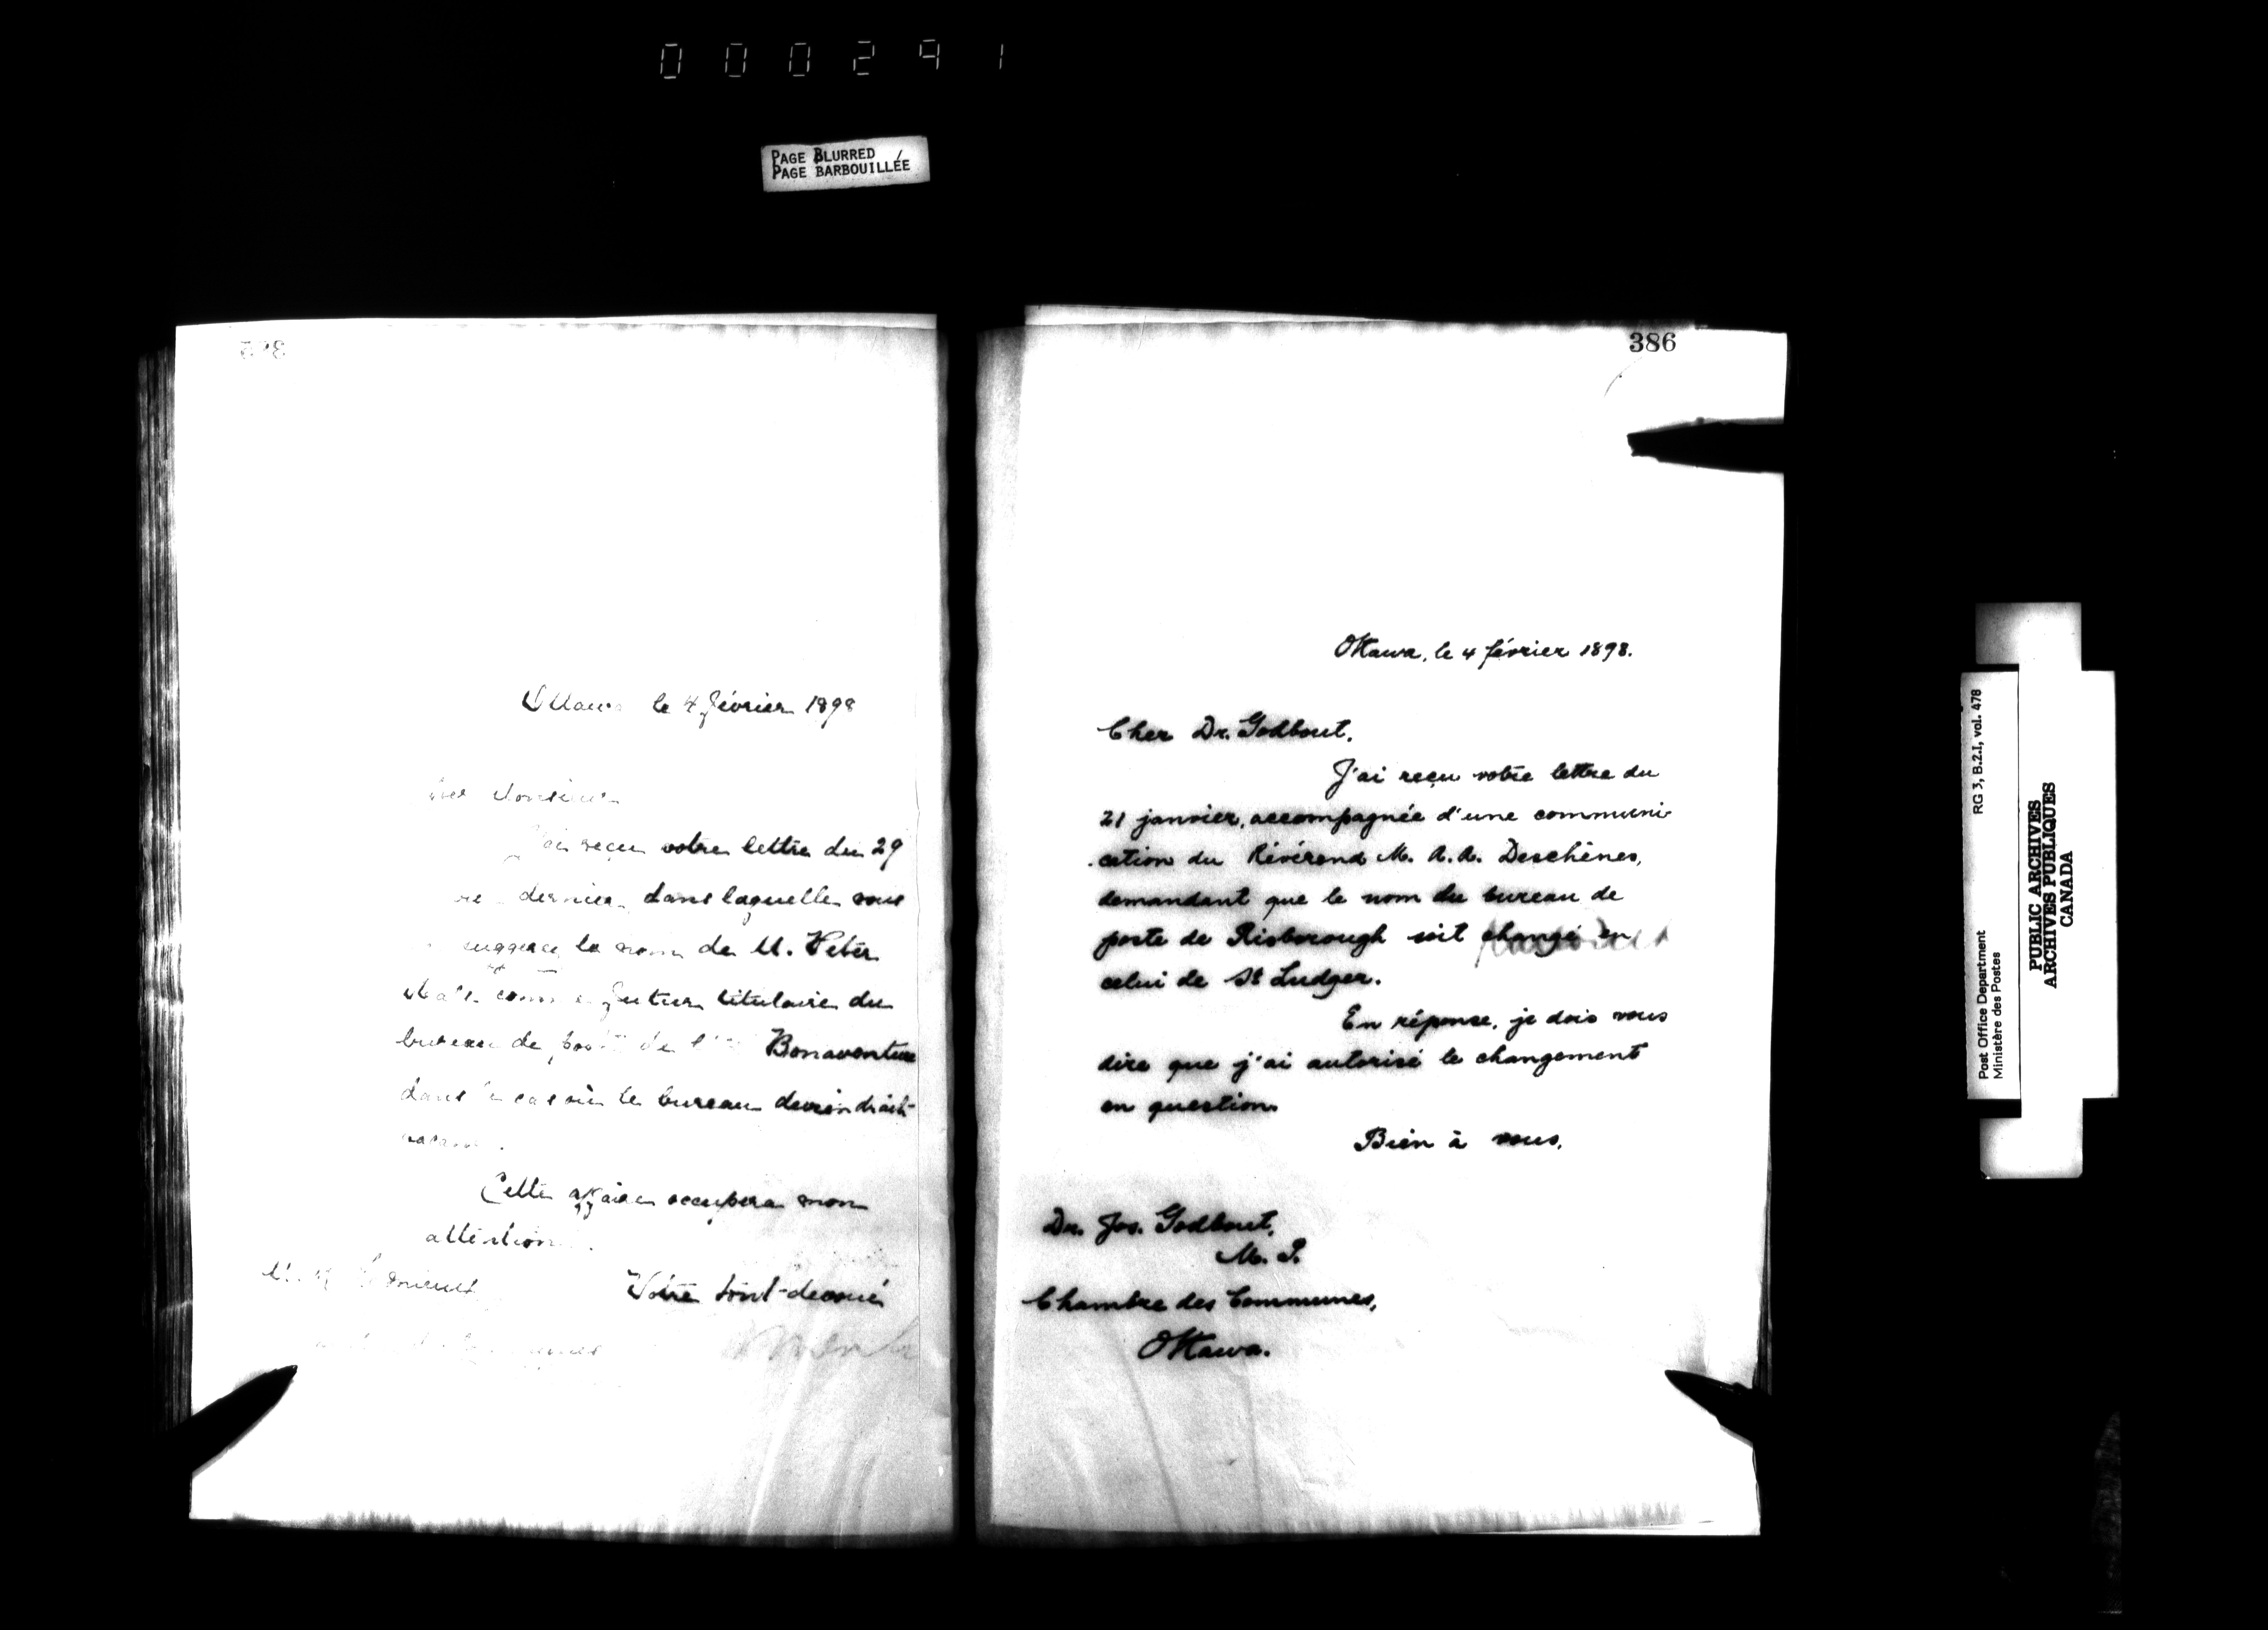 000291
PAGE BLURRED
PAGE BARBOUILLÉE
385
Ottawa le 4 février 1898
Monsieur
reçu votre lettre du 29
dernier dans laquelle vous
suggerez le nom de M. Peter
comme futur titulaire du
bureau de poste de Bonaventure
dans le cas où le bureau deviendrait
vacant.
Cette affaire occupera mon
attention.
Votre tout-devoué
386
Ottawa, le 4 février 1898.
Cher Dr. Godbout,
J'ai reçu votre lettre du
21 janvier, accompagnée d'une communi-
cation du Révérend M. A. A. Deschênes,
demandant que le nom du bureau de
poste de Risborough soit changé en
celui de St Ludger.
En réponse, je dois vous
dire que j'ai autorisé le changement
en question.
Bien à vous,
Dr. Jos. Godbout,
M. P.
Chambre des Communes,
Ottawa.
Post Office Department RG 3, B.2.I, vol. 478
Ministère des Postes
PUBLIC ARCHIVES
ARCHIVES PUBLIQUES
CANADA